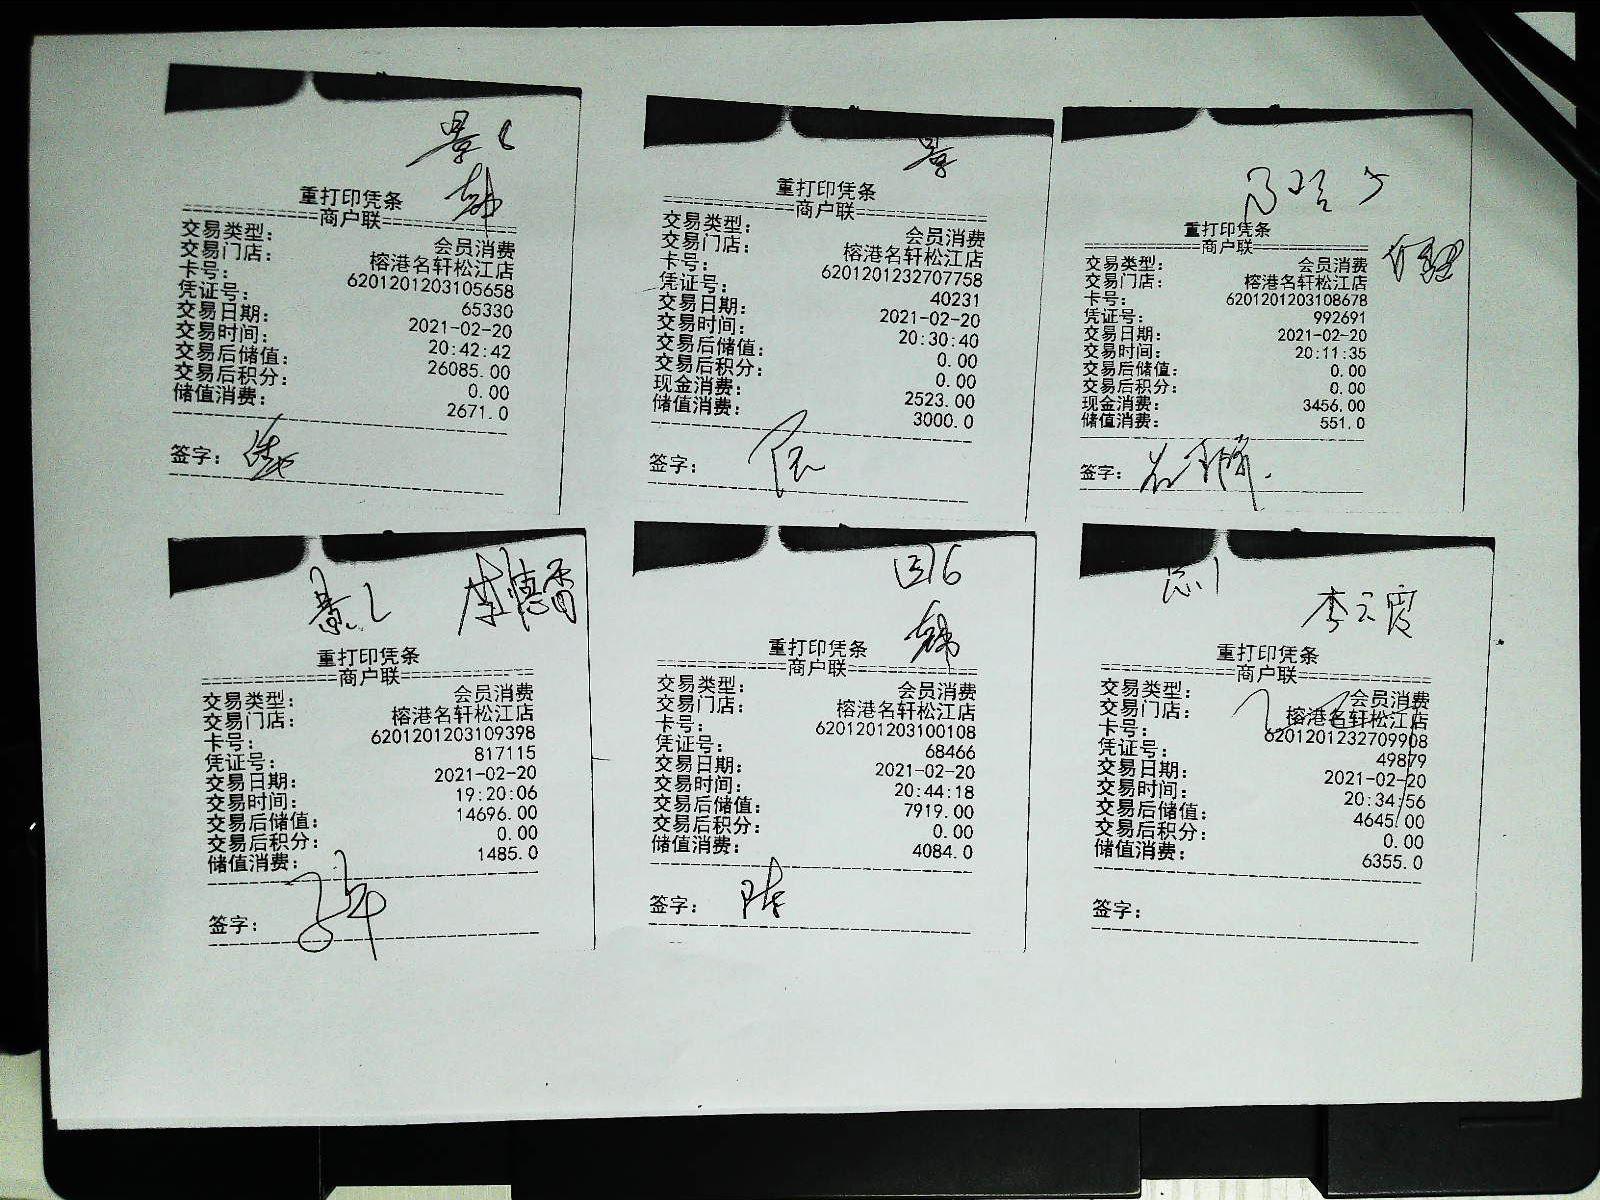 重打印凭条
商户联
交易类型： 会员消费
交易门店： 榕港名轩松江店
卡号： 6201201203105658
凭证号： 65330
交易日期： 2021-02-20
交易时间： 20:42:42
交易后储值： 26085.00
交易后积分： 0.00
储值消费： 2671.0
签字：
重打印凭条
商户联
交易类型： 会员消费
交易门店： 榕港名轩松江店
卡号： 6201201232707758
凭证号： 40231
交易日期： 2021-02-20
交易时间： 20:30:40
交易后储值： 0.00
交易后积分： 0.00
现金消费： 2523.00
储值消费： 3000.0
签字：
重打印凭条
商户联
交易类型： 会员消费
交易门店： 榕港名轩松江店
卡号： 6201201203108678
凭证号： 992691
交易日期： 2021-02-20
交易时间： 20:11:35
交易后储值： 0.00
交易后积分： 0.00
现金消费： 3456.00
储值消费： 551.0
签字：
重打印凭条
商户联
交易类型： 会员消费
交易门店： 榕港名轩松江店
卡号： 6201201203109398
凭证号： 817115
交易日期： 2021-02-20
交易时间： 19:20:06
交易后储值： 14696.00
交易后积分： 0.00
储值消费： 1485.0
签字：
重打印凭条
商户联
交易类型： 会员消费
交易门店： 榕港名轩松江店
卡号： 6201201203100108
凭证号： 68466
交易日期： 2021-02-20
交易时间： 20:44:18
交易后储值： 7919.00
交易后积分： 0.00
储值消费： 4084.0
签字：
李云霞
重打印凭条
商户联
交易类型： 会员消费
交易门店： 榕港名轩松江店
卡号： 6201201232709908
凭证号： 49879
交易日期： 2021-02-20
交易时间： 20:34:56
交易后储值： 4645.00
交易后积分： 0.00
储值消费： 6355.0
签字：